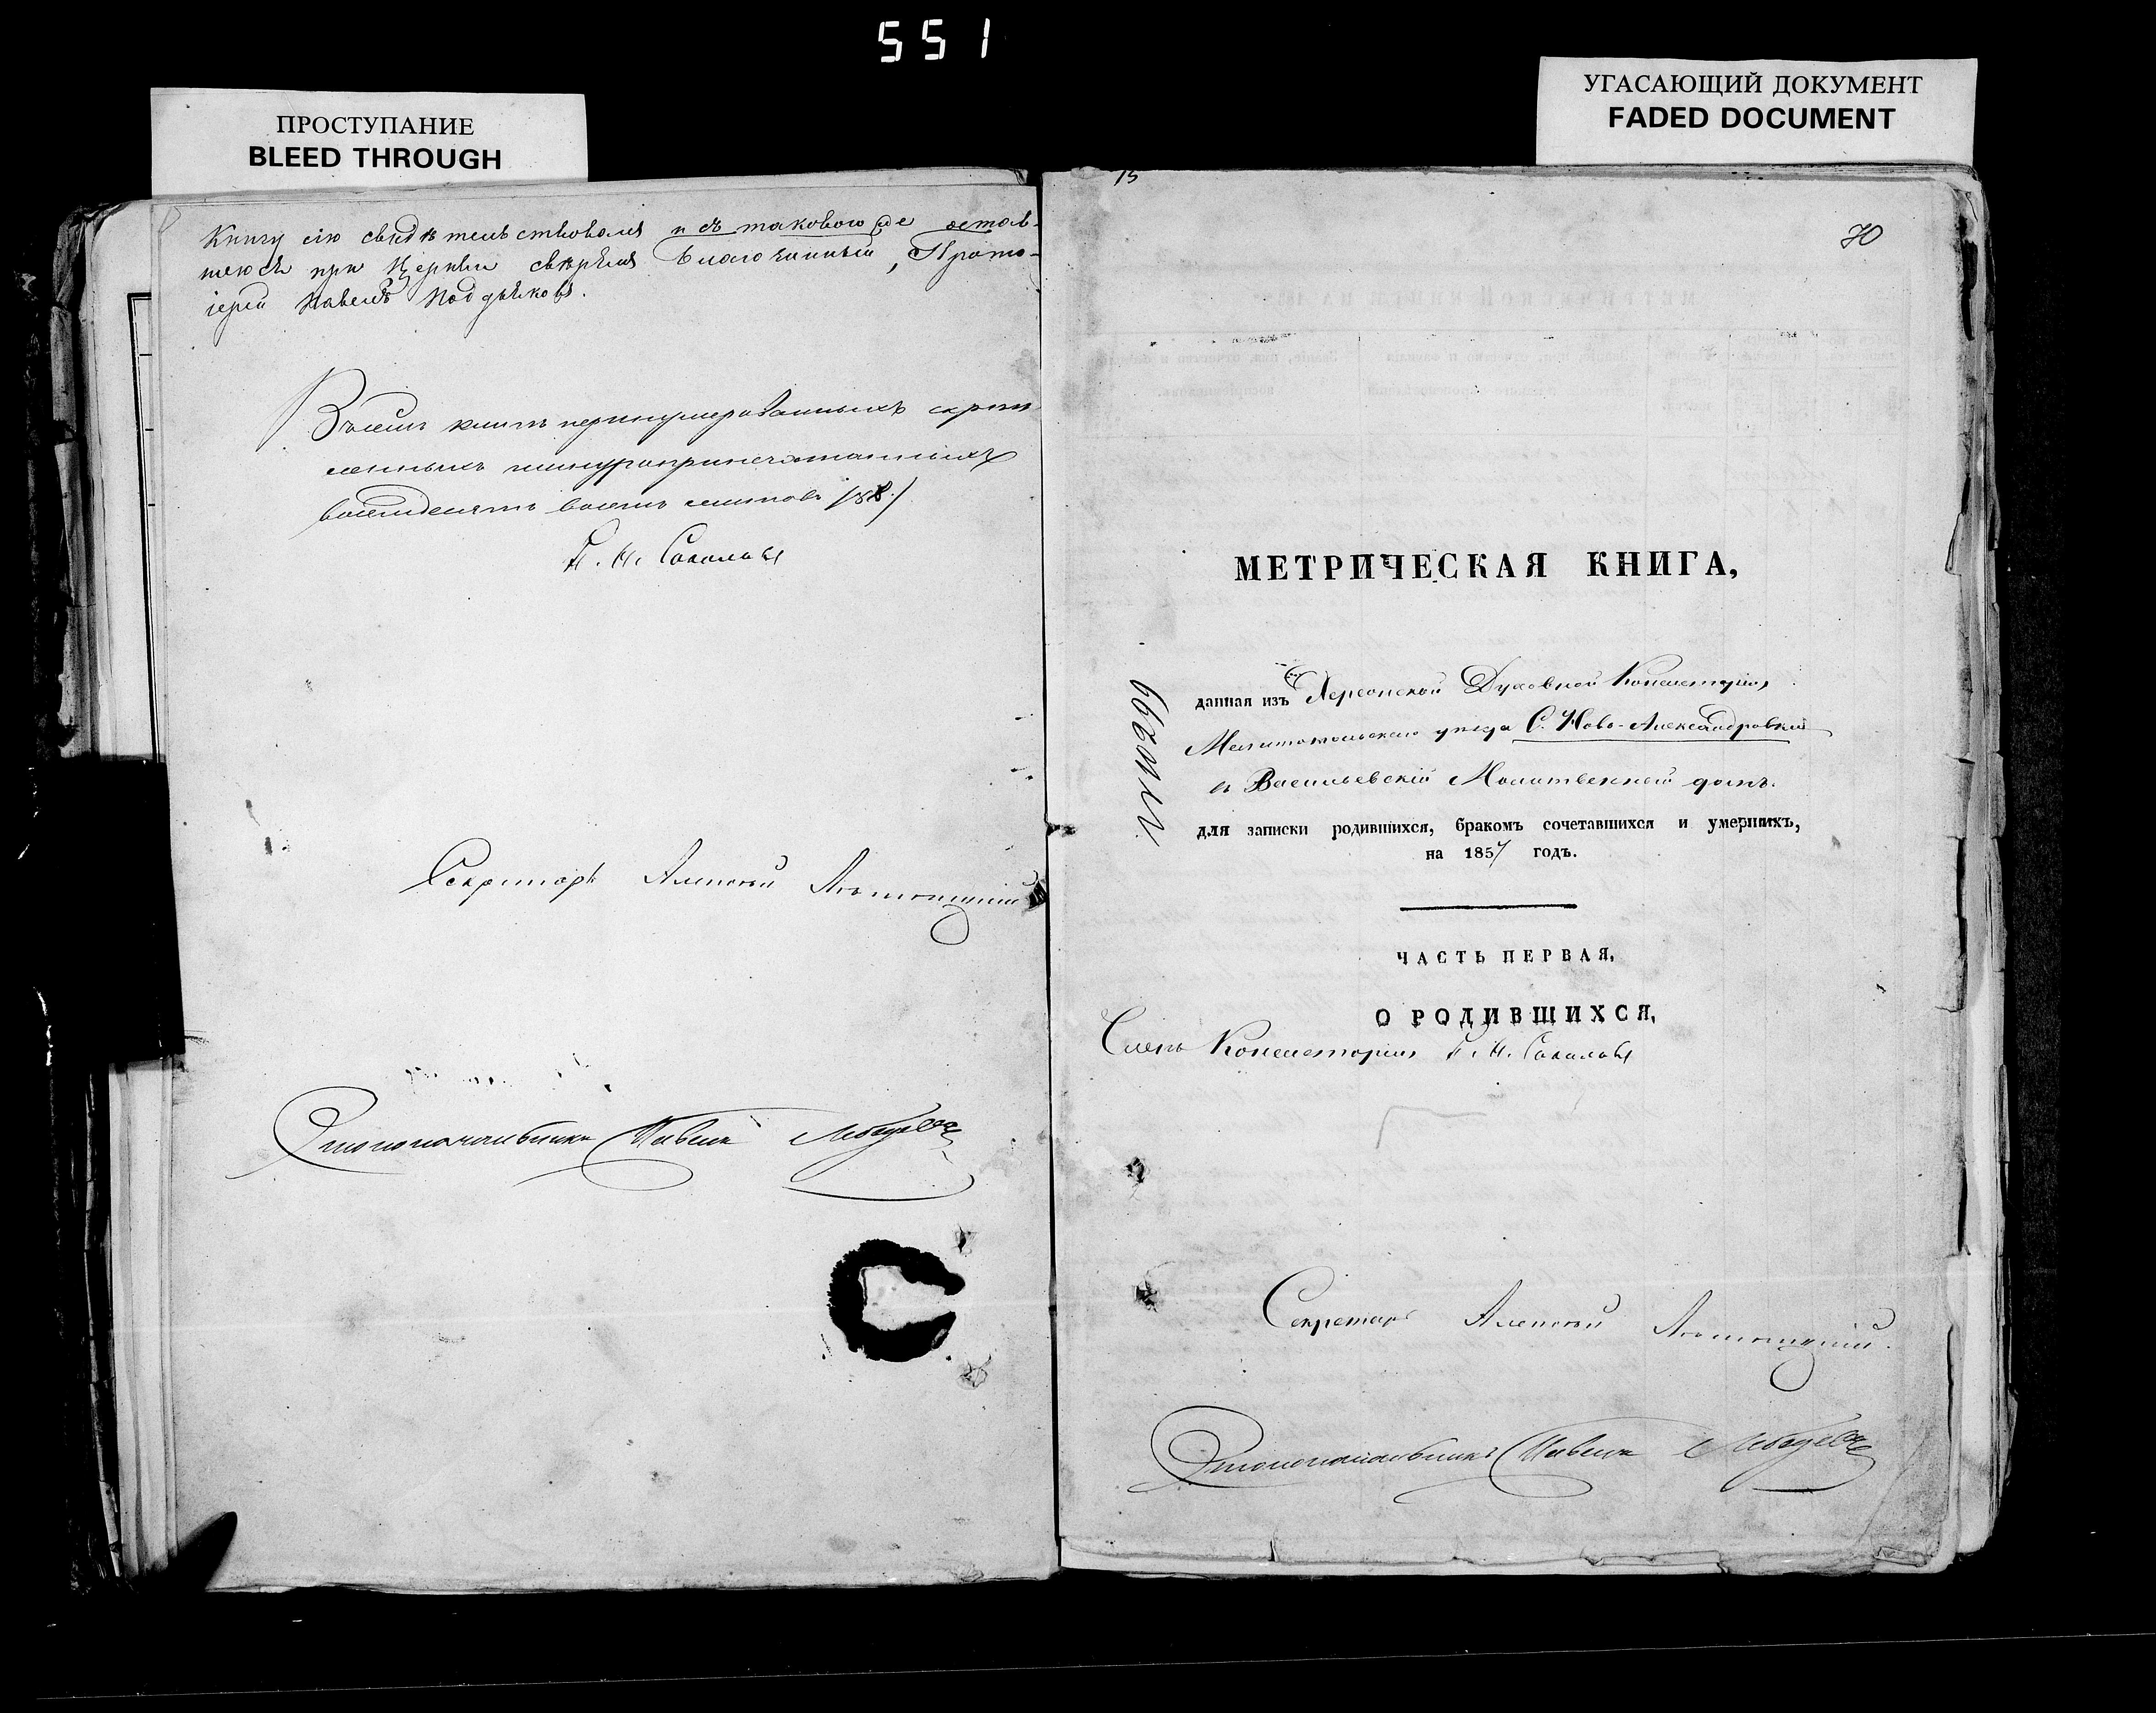 551
ПРОСТУПАНИЕ
BLEED THROUGH
УГАСАЮЩИЙ ДОКУМЕНТ
FADED DOCUMENT
Книгу сію свидѣтельствовалъ и съ таковою же остав-
шеюся при Церкви свѣрялъ Благочинный, Прото-
іерей Павелъ Поддьяковъ.
Всѣхъ книгъ перенумерованныхъ скрѣп
ленныхъ шнуропripечатанныхъ
восемдесятъ восемь листовъ /88./
П. Н. Соколовъ
Секретарь Алексѣй
Столоначальникъ Павелъ Лебедевъ
15
70
МЕТРИЧЕСКАЯ КНИГА,
данная изъ Херсонской Духовной Консисторіи
Мелитопольскаго уѣзда С. Ново-Александровки
въ Васильевскій Молитвенный домъ.
для записки родившихся, бракомъ сочетавшихся и умершихъ,
на 1857 годъ.
ЧАСТЬ ПЕРВАЯ,
О РОДИВШИХСЯ,
Членъ Консисторіи П. Н. Соколовъ
Секретарь Алексѣй
Столоначальникъ Павелъ Лебедевъ